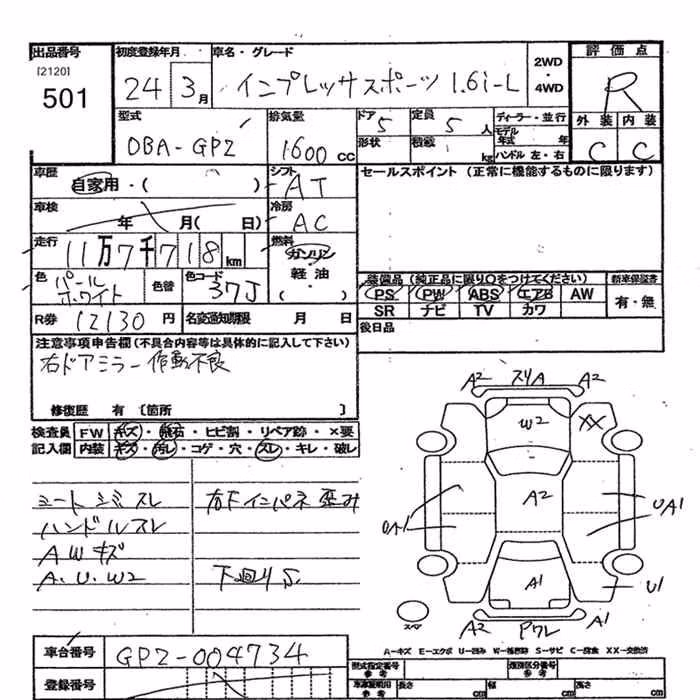 出品番号 初度登録年月 車名・グレード 2WD・4WD 評価点
[2120] 501 24 3月 インプレッサスポーツ 1.6i-L R
型式 排気量 ドア 5 定員 5人 ディーラー・並行 外装 内装
DBA-GP2 1600cc 形状 積載 kg モデル年式 年 C C
ハンドル 左・右
車歴 シフト セールスポイント(正常に機能するものに限ります)
自家用・( ) AT
車検 冷房
年 月( 日) AC
走行 燃料
11万7千718km ガソリン・軽油・( )
色 パールホワイト 色替 色コード 37J 装備品(純正品に限り○をつけてください) 新車保証書
PS PW ABS エアB AW 有・無
SR ナビ TV カワ
R券 12130円 名変通知期限 月 日 後日品
注意事項申告欄(不具合内容等は具体的に記入して下さい)
右ドアミラー作動不良
修復歴 有 〔箇所 〕
検査員記入欄 FW キズ・飛石・ヒビ割・リペア跡・×要
内装 キズ・汚レ・コゲ・穴・スレ・キレ・破レ
シートシミスレ 右下インパネ歪み
ハンドルスレ
AWキズ
A.U.W2 下回りS
A2 スリA A2
W2 XX
A2
UA1 UA1
A1 U1
スペア A2 PワレA1
A-キズ E-エクボ U-凹み W-補修跡 S-サビ C-腐食 XX-交換済
車台番号 GP2-004734
登録番号
型式指定番号 参考 類別区分番号 参考
車庫証明用 参考 長さ cm 幅 cm 高さ cm